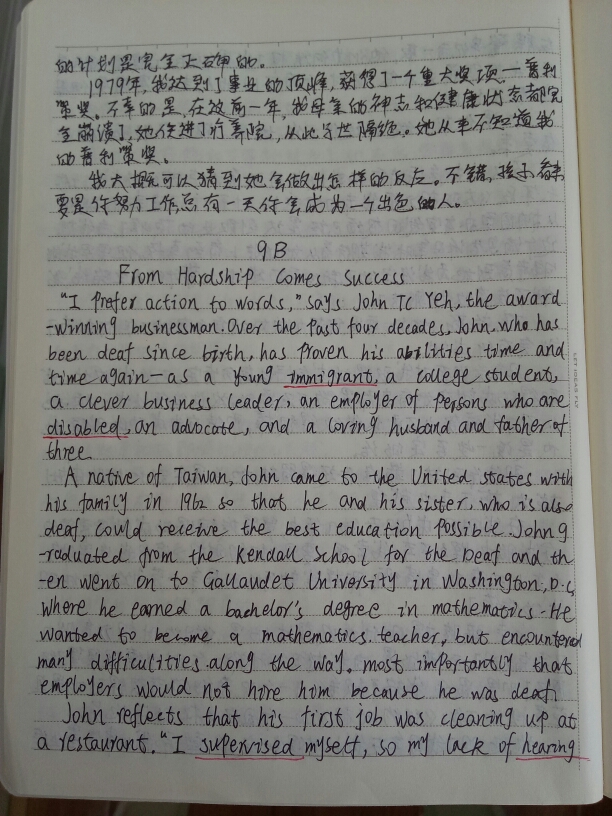 的计划是完全正确的。
1979年,我达到了事业的顶峰,获得了一个重大奖项—普利
策奖。不幸的是,在这前一年,我母亲的神志和健康状态都完
全崩溃了,她住进了疗养院,从此与世隔绝。她从来不知道我
的普利策奖。
我大概可以猜到她会做出怎样的反应。不错,孩子
要是你努力工作总有一天你会成为一个出色的人。
9B
From Hardship Comes Success
"I prefer action to words," says John TC Yeh, the award
-winning businessman. Over the past four decades, John, who has
been deaf since birth, has proven his abilities time and
time again—as a young immigrant, a college student,
a clever business leader, an employer of persons who are
disabled, an advocate, and a loving husband and father of
three.
A native of Taiwan, John came to the United States with
his family in 1962 so that he and his sister, who is also
deaf, could receive the best education possible. John g
-raduated from the Kendall School for the Deaf and th
-en went on to Gallaudet University in Washington, D.C,
where he earned a bachelor's degree in mathematics. He
wanted to become a mathematics teacher, but encountered
many difficulities along the way, most importantly that
employers would not hire him because he was deaf.
John reflects that his first job was cleaning up at
a restaurant. "I supervised myself, so my lack of hearing